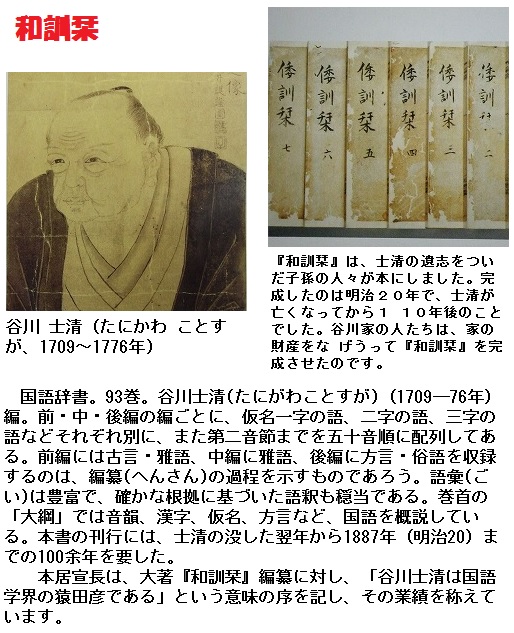 和訓栞
倭訓栞 七
倭訓栞 六
倭訓栞 五
倭訓栞 四
倭訓栞 三
倭訓栞 二
『和訓栞』は、士清の遺志をつい
だ子孫の人々が本にしました。完
成したのは明治２０年で、士清が
亡くなってから１ １０年後のこと
でした。谷川家の人たちは、家の
財産をな げうって『和訓栞』を完
成させたのです。
谷川 士清（たにかわ ことす
が、1709～1776年）
国語辞書。93巻。谷川士清(たにがわことすが)（1709―76年）
編。前・中・後編の編ごとに、仮名一字の語、二字の語、三字の
語などそれぞれ別に、また第二音節までを五十音順に配列してあ
る。前編には古言・雅語、中編に雅語、後編に方言・俗語を収録
するのは、編纂(へんさん)の過程を示すものであろう。語彙(ご
い)は豊富で、確かな根拠に基づいた語釈も穏当である。巻首の
「大綱」では音韻、漢字、仮名、方言など、国語を概説してい
る。本書の刊行には、士清の没した翌年から1887年（明治20）ま
での100余年を要した。
本居宣長は、大著『和訓栞』編纂に対し、「谷川士清は国語
学界の猿田彦である」という意味の序を記し、その業績を称えて
います。